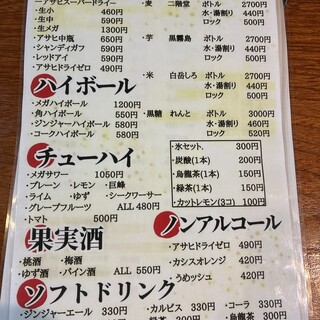 アサヒスーパードライ
・生小 460円
・生中 590円
・生メガ 1300円
・アサヒ中瓶 650円
・シャンディガフ 590円
・レッドアイ 590円
・アサヒドライゼロ 490円
・麦 二階堂 ボトル 2700円
水・湯割り 440円
ロック 500円
・芋 黒霧島 ボトル 2700円
水・湯割り 440円
ロック 500円
・米 白岳しろ ボトル
水・湯割り
ロック
・黒糖 れんと ボトル 3000円
水・湯割り 460円
ロック 520円
ハイボール
・メガハイボール 1200円
・角ハイボール 550円
・ジンジャーハイボール 580円
・コークハイボール 580円
チューハイ
・メガサワー 1050円
・プレーン ・レモン ・巨峰
・ライム ・ゆず ・シークワーサー
・グレープフルーツ ALL 480円
・トマト 500円
・氷セット 300円
・炭酸(1本) 200円
・烏龍茶(1本) 150円
・緑茶(1本) 150円
・カットレモン(3コ) 100円
果実酒
・桃酒 ・梅酒
・ゆず酒 ・パイン酒 ALL 550円
ノンアルコール
・アサヒドライゼロ 490円
・カシスオレンジ 490円
・うめッシュ 490円
ソフトドリンク
・ジンジャーエール 330円
・カルピス 330円
・コーラ 330円
・烏龍茶